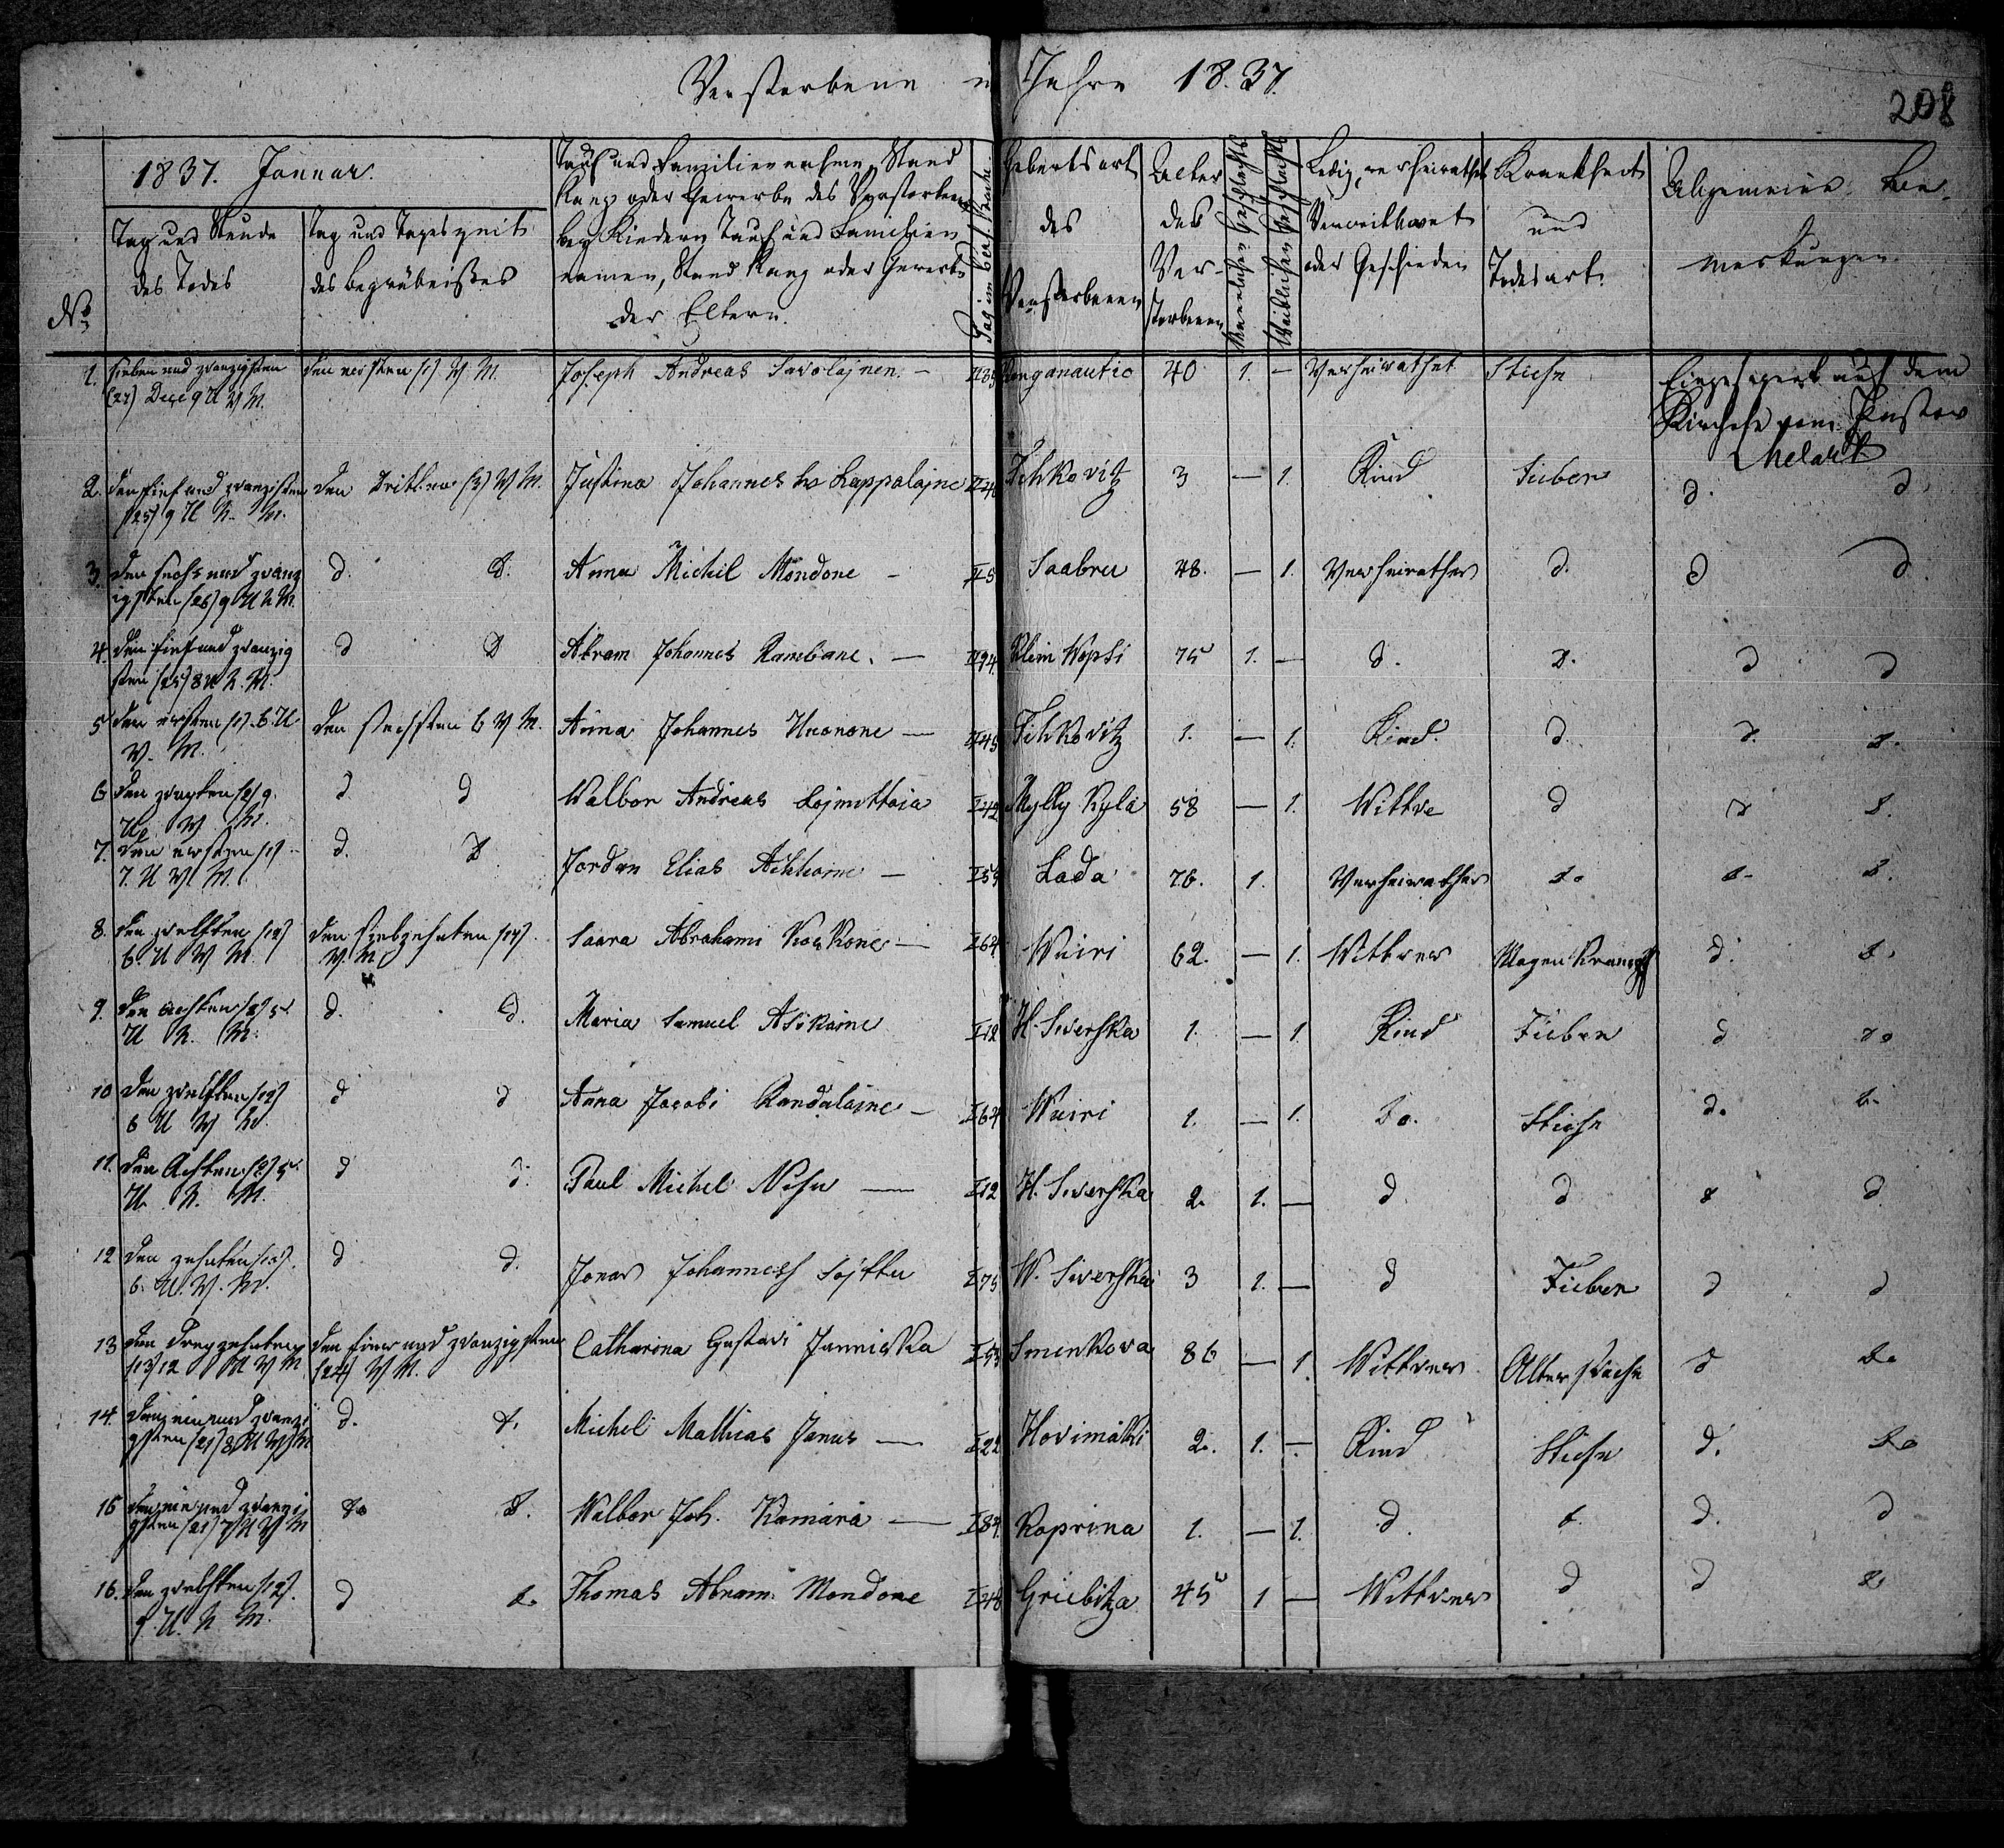 Verstorbene im Jahre 1837.
208
1837. Januar.
No
Tag und Stunde
des Todes
Tag und Tageszeit
des Begräbnißes
Tauf und Familiennahme, Stand
Rang oder Gewerbe des Verstorbenen
bey Kindern Tauf und Familien
namen, Stand Rang oder Gewerbe
der Eltern.
Geburtsort
des
Verstorbenen
Alter
des
Ver-
storbenen
Männlichen Geschlechts
Weiblichen Geschlechts
Ledig, verheirathet
Verwittwet
oder Geschieden
Krankheit
und
Todesart.
Allgemeine Be-
merkungen.
1. sieben und zwanzigsten den ersten (1) V M. Joseph Andreas Savolajnen. — Konganautio 40 1. — Verheirathet Stiche
(27) Dec 9 U V M.
Kirchhofe vom Pastor
2. den fünf und zwanzigsten den dritten (3) V M. Justina Johannes Lappalajne Fihkovitz 3 — 1. Kind Fieber d. d.
(25) 9 U N. M.
3. den sechs und zwanz d. d. Anna Michel Mondone — II5 Saabru 48. — 1. Verheirathet d. d d
igsten (26) 9 U N M.
4. den fünf und zwanzig d d Abram Johannes Rambane. — II94 Klein Wopsi 75 1. — d. d. d d
sten (25) 8 U N. M.
5 den ersten (1) 6. U den sechsten 6 V M. Anna Johannes Huonone — Fihkovitz 1. — 1. Kind. d. d. d.
V. M.
6 den zweyten (2) 9. d d Walbor Andreas Lojmettaia I42 Mylly Kylä 58 — 1. Wittwe d d d.
U. V M.
7. den ersten (1) d. d. Jordan Elias Ahtiaine — Lada 76. 1. Verheirathet do d. d.
7. U V M.
8. den zwölften (12) den siebzehnten (17) Saara Abrahami Koskone — I64 Wuiri 62. — 1. Wittwer Magen Krampf d. d.
6. U V M. V. M
9. den achten (8) 5 d. d. Maria Samuel Asikaine I12 H. Siverska 1. — 1. Kind Fieber d do
U N. M.
10 den zwölften (12) d d Anna Jacobi Randalajne — I64 Wuiri 1. — 1. Do. Stiche d. d.
6 U V M.
11. den Achten (8) 5. d d. Paul Michel Nehu — I12 H. Siverska 2. 1. — d. d d d.
U. N. M.
12 den zehnten (10) d d. Jonas Johannes Sojttu I75 W. Siverska 3 1. — d Fieber d d
6. U. V. M.
13 den dreyzehnten den vier und zwanzigsten Catharina Gustavi Janniska Smenkova 86 — 1. Wittwer Altersschwäche d do
(13) 12 U V M (24) V M.
14. den ein und zwanzi d. d. Michel Mathias Janus — I22 Hovimäki 2. 1. — Kind Stiche d. do
gsten (21) 8 U V M
15 den ein und zwanzi do d. Walbor Joh. Kamärä — I84. Koprina 1. — 1. d. d. d. d
gsten (21) 7 U V M
16. den zwölften (12) d d. Thomas Abram Mondone I48 Griebitza 45 1 — Wittwer d d d
9. U. N M.